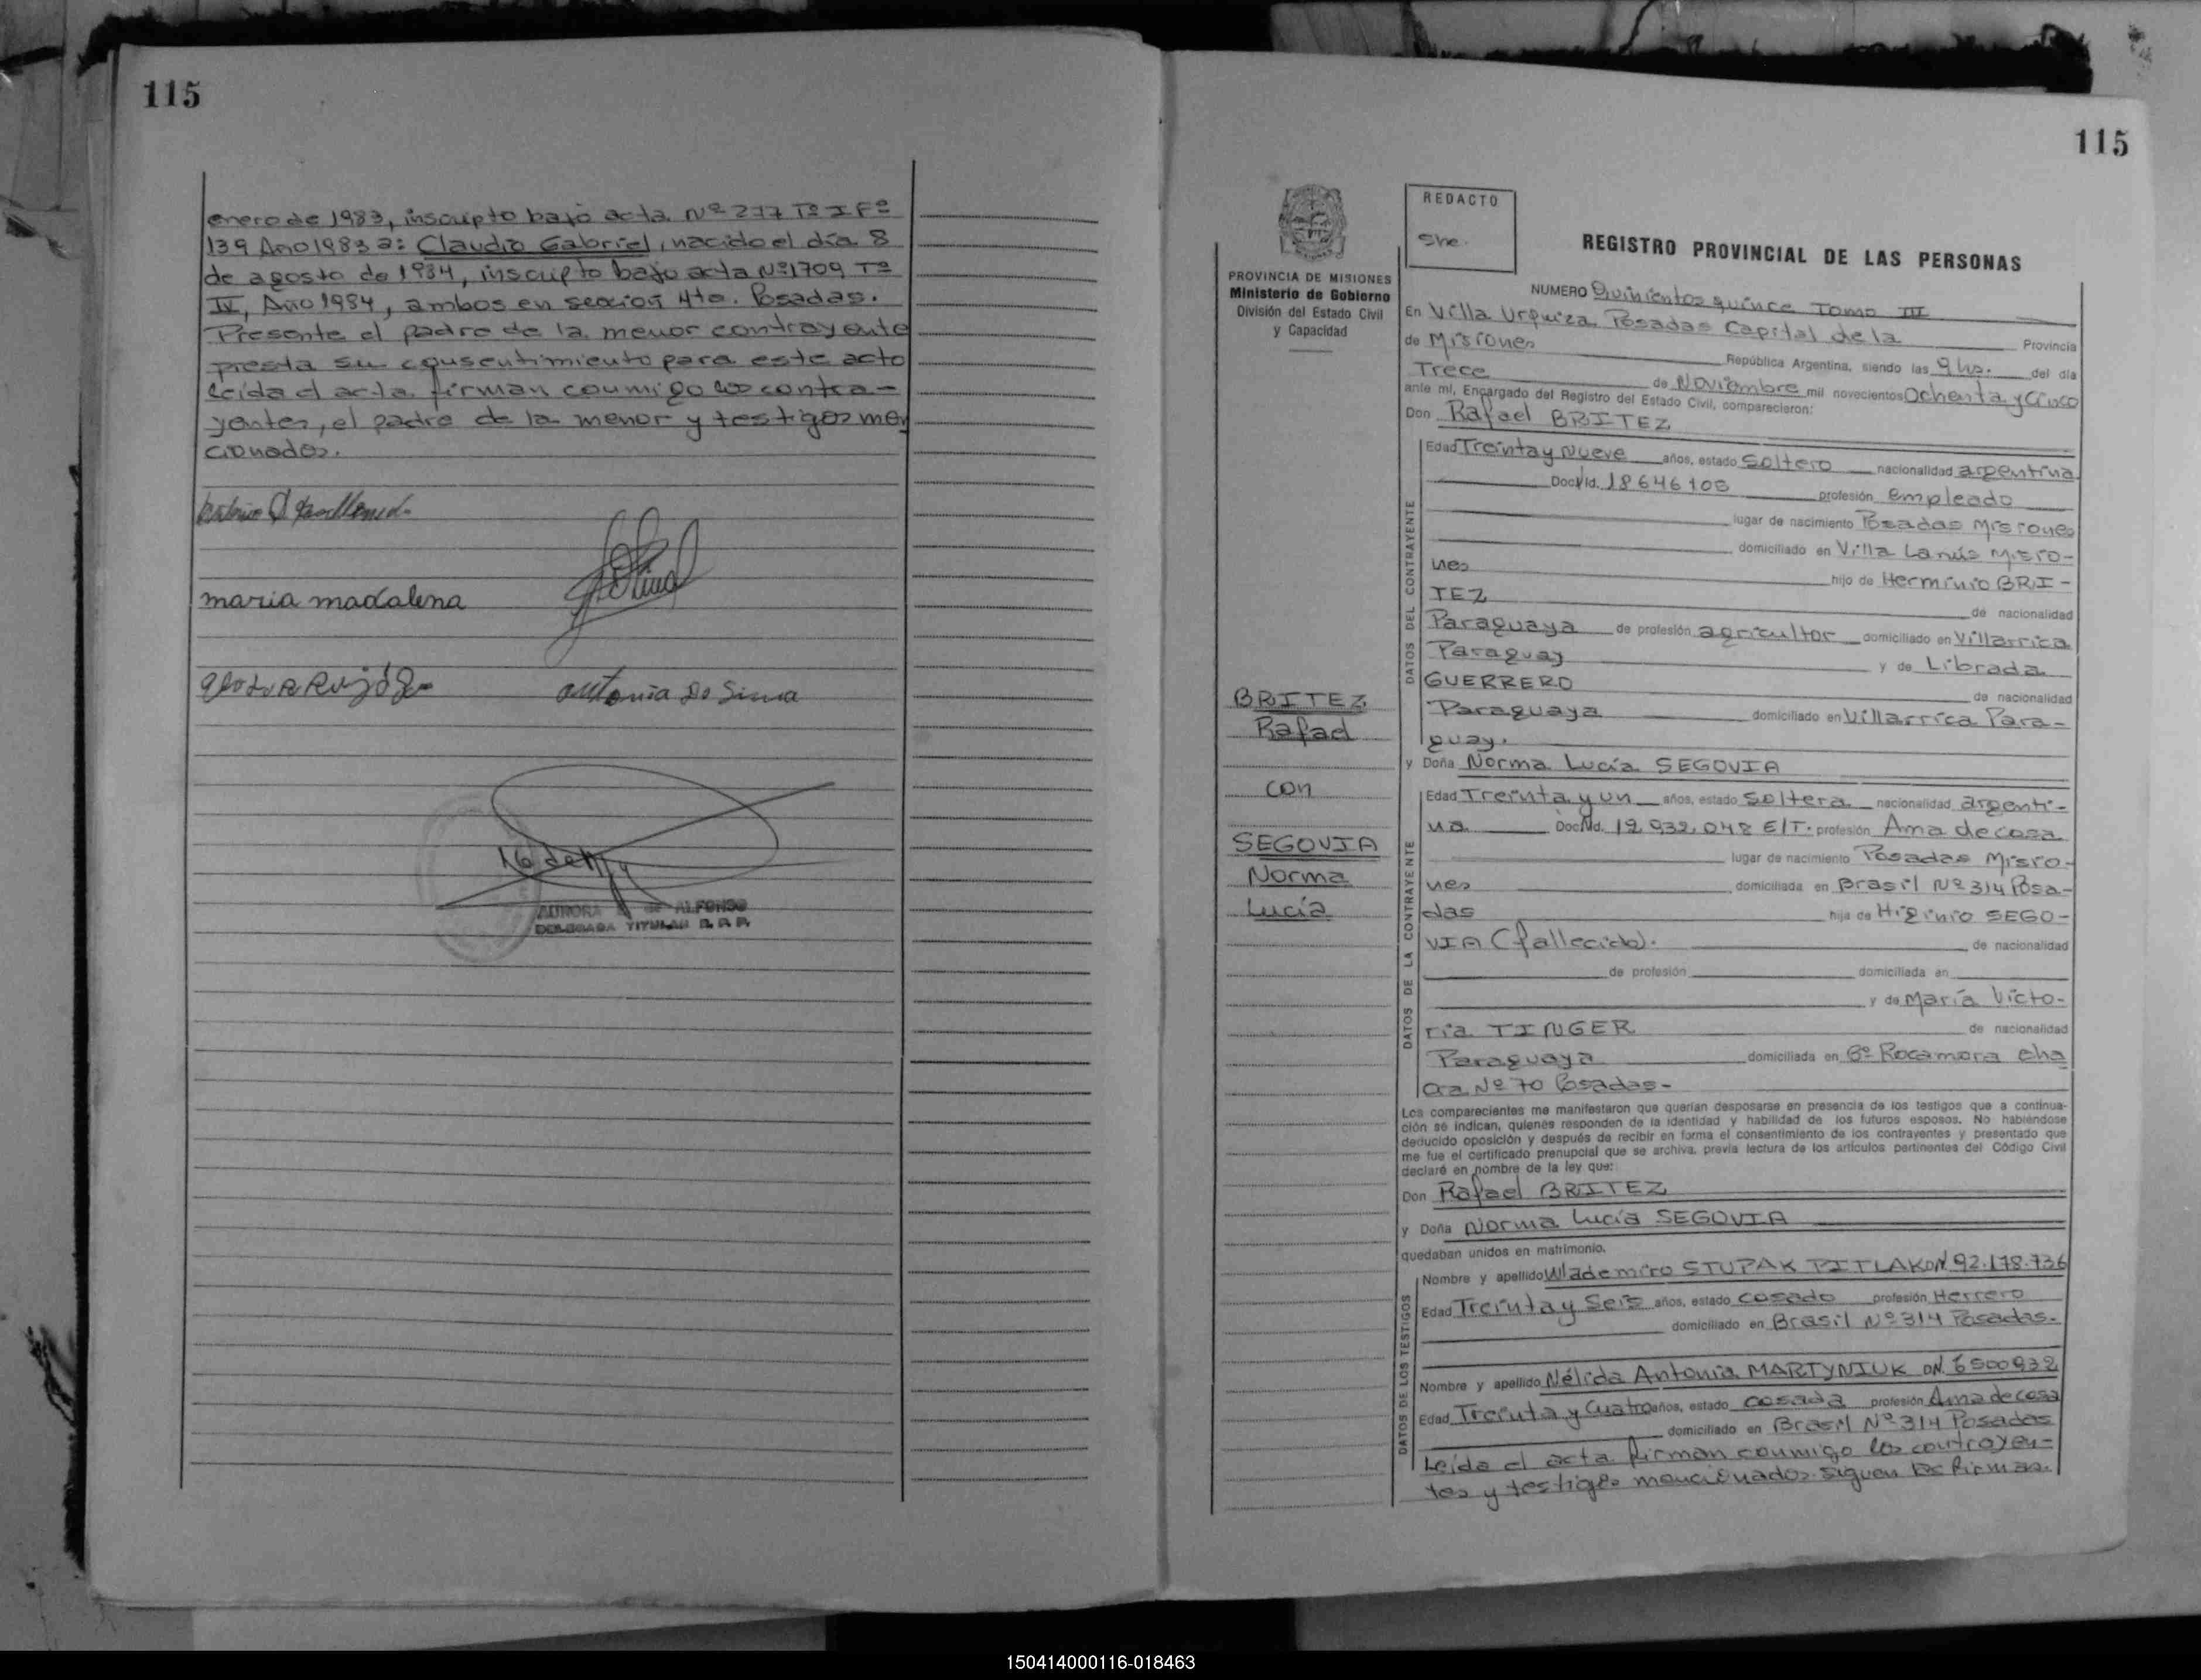 115
enero de 1983, inscripto bajo acta Nº 277 Tº I Fº
139 Año 1983 a: Claudio Gabriel, nacido el día 8
de agosto de 1984, inscripto bajo acta Nº 1709 Tº
IV, Año 1984, ambos en sección 4ta. Posadas.
Presente el padre de la menor contrayente
presta su consentimiento para este acto
leída el acta firman conmigo los contra-
yentes, el padre de la menor y testigos men
cionados.
maria madalena
antonia Do Silva
AURORA de ALFONSO
DELEGADA TITULAR R. P. P.
115
PROVINCIA DE MISIONES
Ministerio de Gobierno
División del Estado Civil
y Capacidad
REDACTO
REGISTRO PROVINCIAL DE LAS PERSONAS
NUMERO Quinientos quince Tomo III
En Villa Urquiza Posadas Capital de la Provincia
de Misiones República Argentina, siendo las 9 hs. del día
Trece de Noviembre mil novecientos Ochenta y Cinco
ante mi, Encargado del Registro del Estado Civil, comparecieron:
Don Rafael BRITEZ
BRITEZ
Rafael
con
SEGOVIA
Norma
Lucía
DATOS DEL CONTRAYENTE
Edad Treinta y Nueve años, estado Soltero nacionalidad argentina
Doc. Id. 18646108 profesión empleado
lugar de nacimiento Posadas Misiones
domiciliado en Villa Lanús Misio-
nes hijo de Herminio BRI-
TEZ de nacionalidad
Paraguaya de profesión agricultor domiciliado en Villarrica
Paraguay y de Librada
GUERRERO de nacionalidad
Paraguaya domiciliado en Villarrica Para-
guay.
y Doña Norma Lucía SEGOVIA
DATOS DE LA CONTRAYENTE
Edad Treinta y un años, estado Soltera nacionalidad argenti-
na Doc. Id. 12.932.048 E/T. profesión Ama de casa
lugar de nacimiento Posadas Misio-
nes domiciliada en Brasil Nº 314 Posa-
das hija de Higinio SEGO-
VIA (fallecido). de nacionalidad
de profesión domiciliada en
y de María Victo-
ria TINGER de nacionalidad
Paraguaya domiciliada en Bº Rocamora Cha
cra Nº 70 Posadas-
Los comparecientes me manifestaron que querían desposarse en presencia de los testigos que a continua-
ción se indican, quienes responden de la identidad y habilidad de los futuros esposos. No habiéndose
deducido oposición y después de recibir en forma el consentimiento de los contrayentes y presentado que
me fue el certificado prenupcial que se archiva, previa lectura de los artículos pertinentes del Código Civil
declaré en nombre de la ley que:
Don Rafael BRITEZ
y Doña Norma Lucía SEGOVIA
quedaban unidos en matrimonio.
DATOS DE LOS TESTIGOS
Nombre y apellido Wlademiro STUPAK PITLAK DNI 92.178.736
Edad Treinta y Seis años, estado casado profesión Herrero
domiciliado en Brasil Nº 314 Posadas.
Nombre y apellido Nélida Antonia MARTYNIUK DNI 6500932
Edad Treinta y Cuatro años, estado casada profesión Ama de casa
domiciliado en Brasil Nº 314 Posadas
Leída el acta firman conmigo los contrayen-
tes y testigos mencionados. siguen las firmas.
150414000116-018463